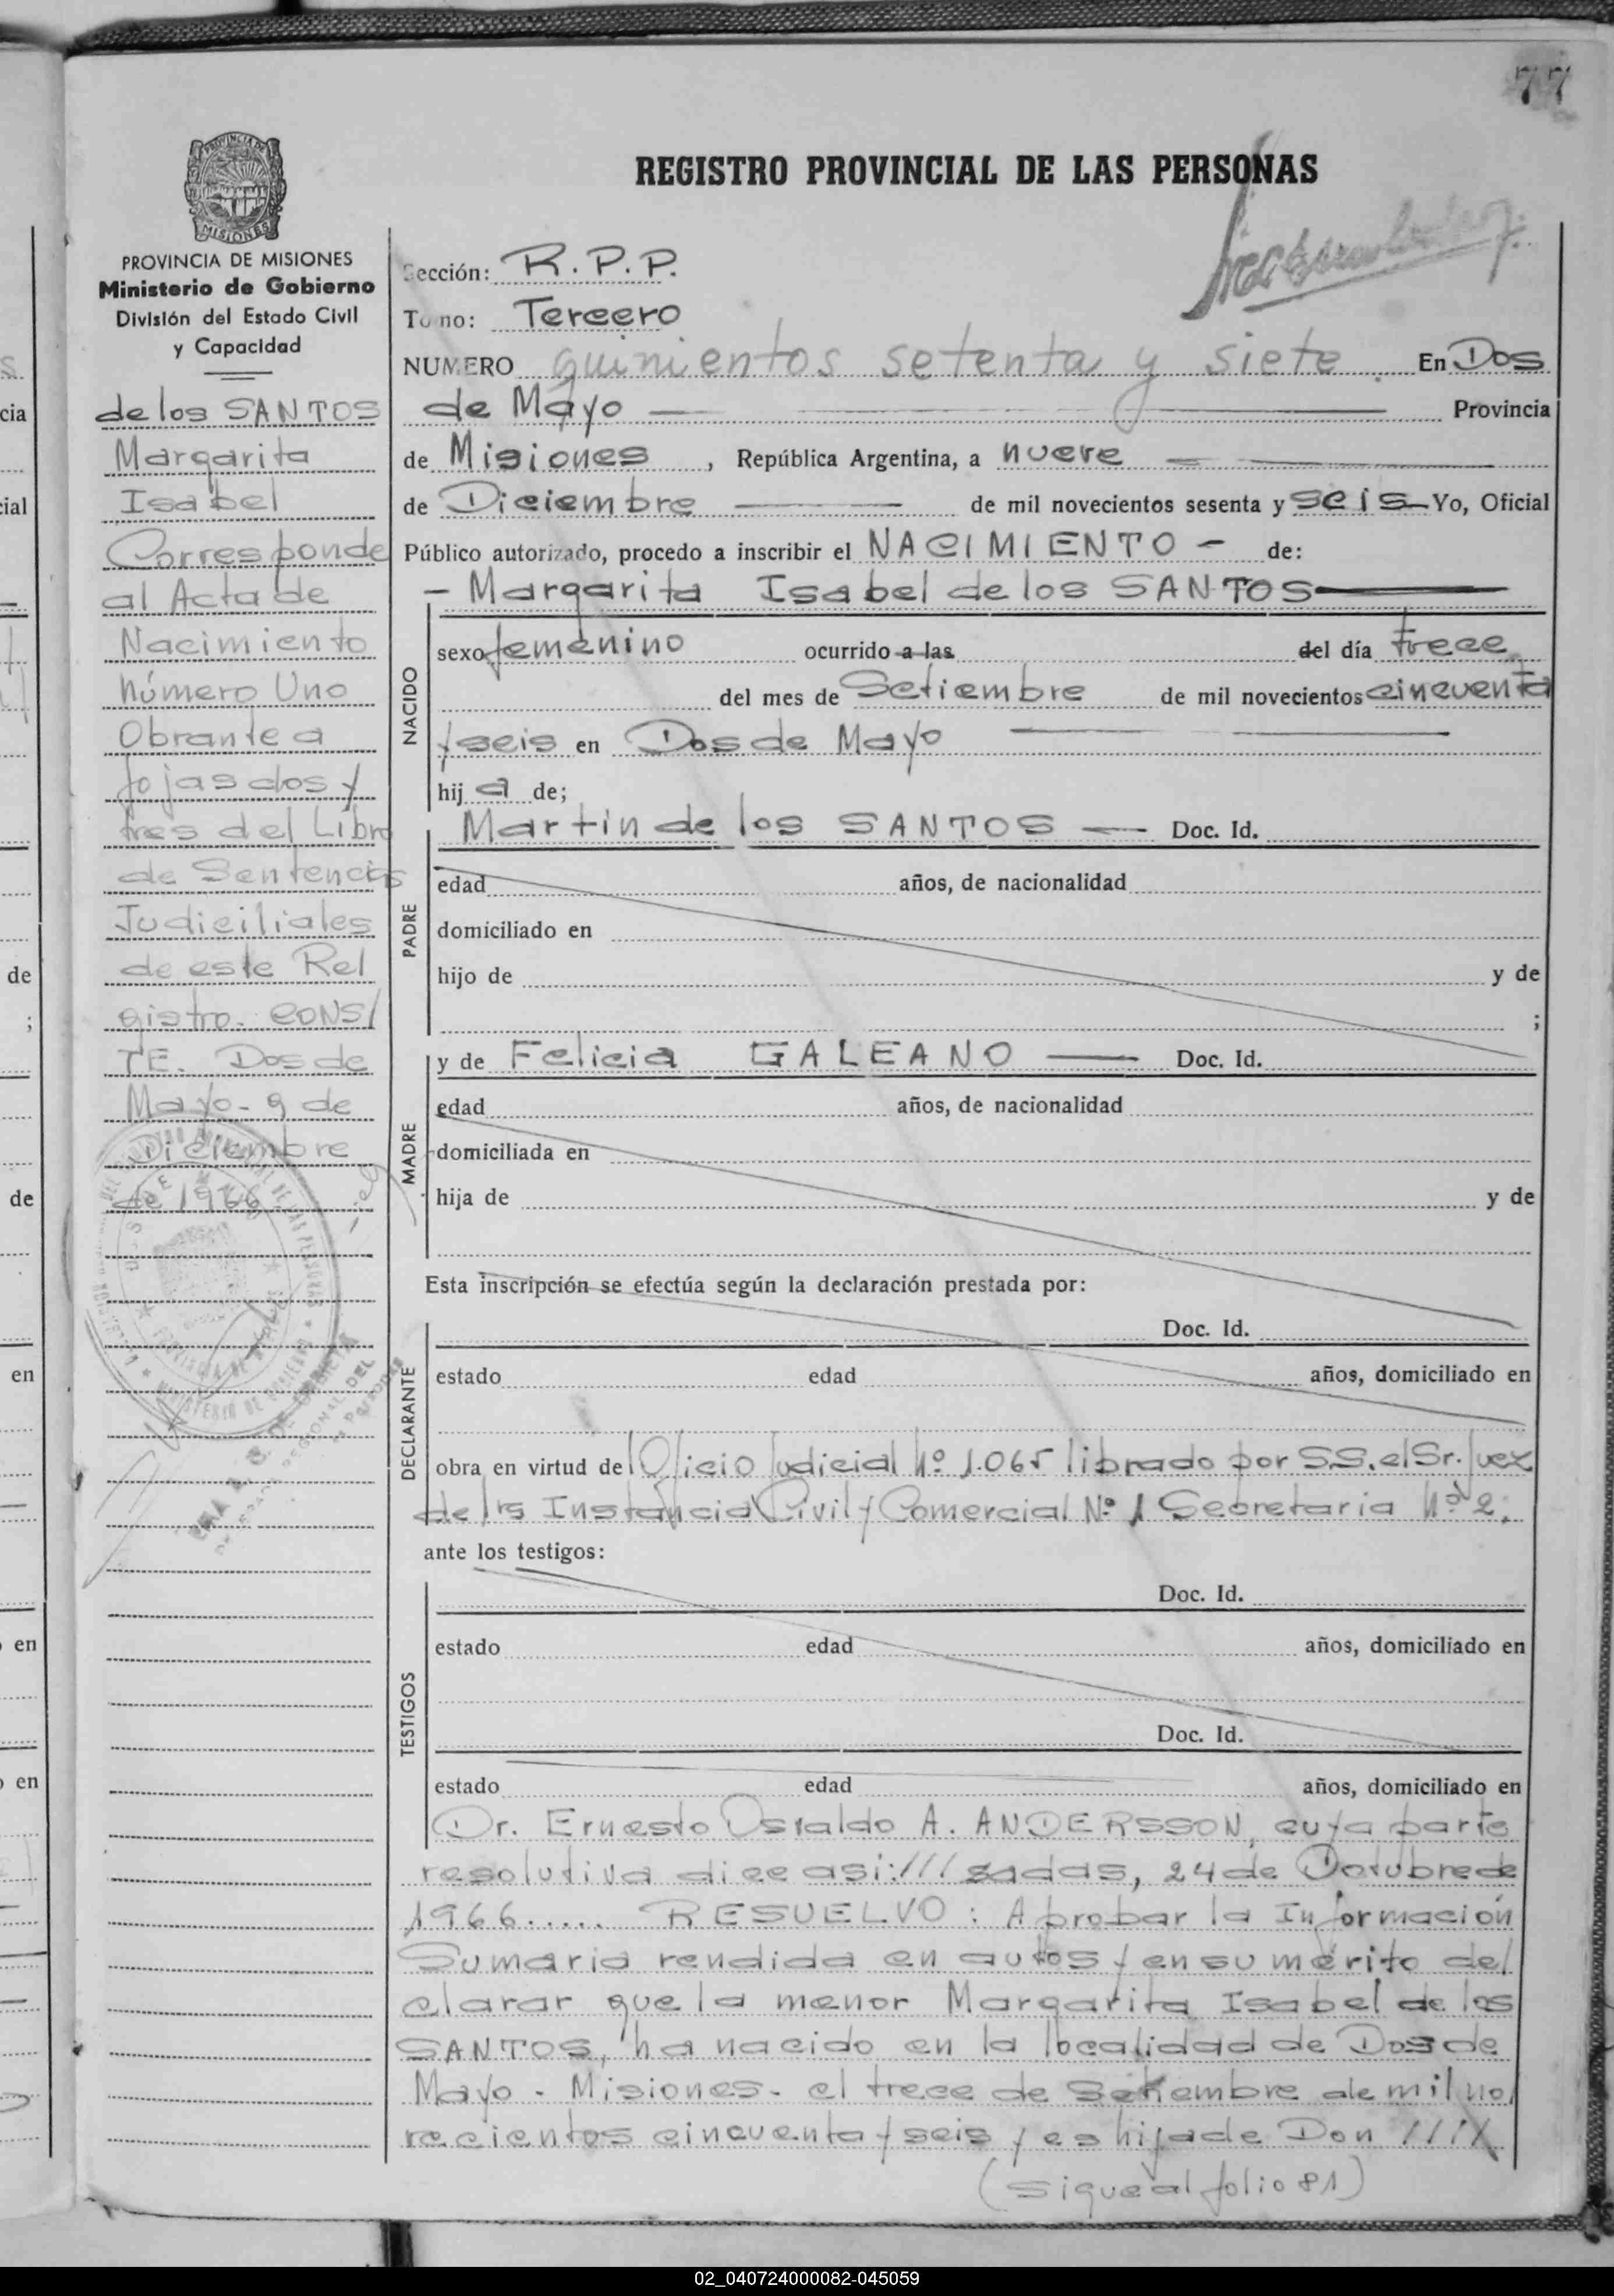 77
REGISTRO PROVINCIAL DE LAS PERSONAS
PROVINCIA DE MISIONES
Ministerio de Gobierno
División del Estado Civil
y Capacidad
de los SANTOS
Margarita
Isabel
Corresponde
al Acta de
Nacimiento
Número Uno
Obrante a
fojas dos y
tres del Libro
de Sentencias
Judiciliales
de este Re/
gistro. CONS/
TE. Dos de
Mayo - 9 de
Diciembre
de 1966
Sección: R.P.P.
Tomo: Tercero
NUMERO quinientos setenta y siete. En Dos
de Mayo Provincia
de Misiones, República Argentina, a nueve
de Diciembre de mil novecientos sesenta y seis Yo, Oficial
Público autorizado, procedo a inscribir el NACIMIENTO - de:
- Margarita Isabel de los SANTOS
NACIDO
sexo femenino ocurrido a las del día trece
del mes de Setiembre de mil novecientos cincuenta
y seis en Dos de Mayo
hija de;
PADRE
Martin de los SANTOS Doc. Id.
edad años, de nacionalidad
domiciliado en
hijo de y de
;
MADRE
y de Felicia GALEANO Doc. Id.
edad años, de nacionalidad
domiciliada en
hija de y de
Esta inscripción se efectúa según la declaración prestada por:
DECLARANTE
Doc. Id.
estado edad años, domiciliado en
obra en virtud del Oficio Judicial Nº 1.065 librado por S.S. el Sr. Juez
de 1ra Instancia Civil y Comercial Nº 1 Secretaria Nº 2.
ante los testigos:
TESTIGOS
Doc. Id.
estado edad años, domiciliado en
Doc. Id.
estado edad años, domiciliado en
Dr. Ernesto Osvaldo A. ANDERSSON, cuya parte
resolutiva dice asi:///sadas, 24 de Octubre de
1966..... RESUELVO: Aprobar la Información
Sumaria rendida en autos y en su mérito de/
clarar que la menor Margarita Isabel de los
SANTOS, ha nacido en la localidad de Dos de
Mayo - Misiones - el trece de Setiembre de mil no/
vecientos cincuenta y seis y es hija de Don ////
(sigue al folio 81)
02_040724000082-045059